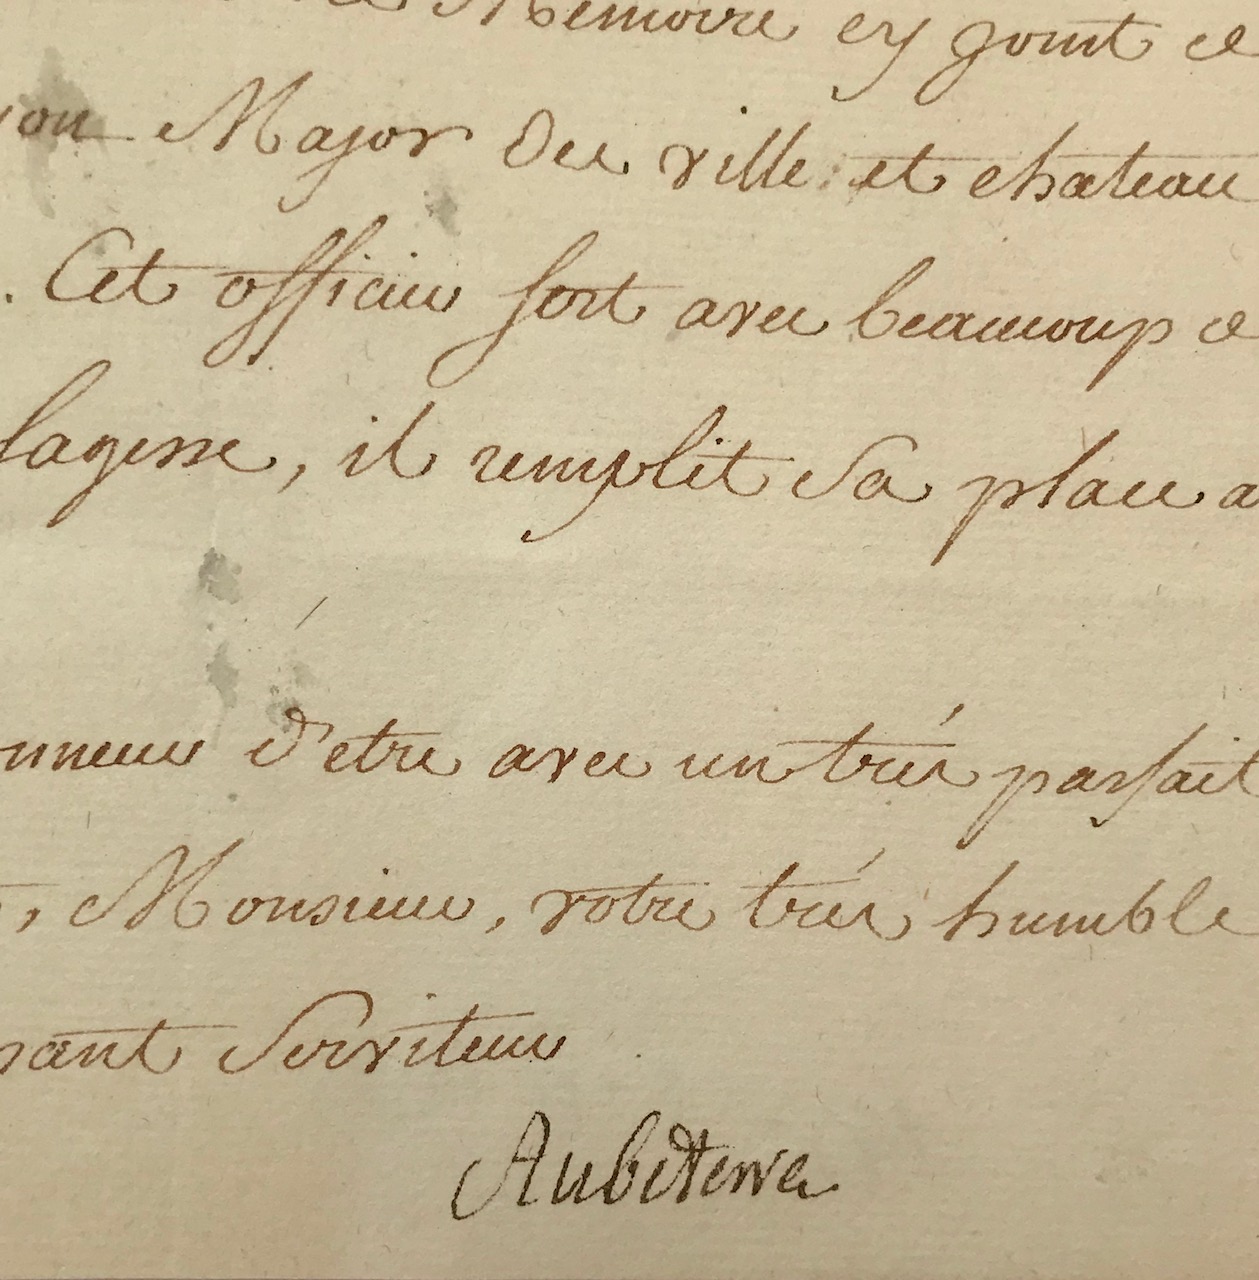 Mémoire cy joint de
Major des ville et chateau
. Cet officier sert avec beaucoup de
sagesse, il remplit sa place a
nneur d'etre avec un trés parfait
, Monsieur, votre trés humble
sant Serviteur
Aubeterre